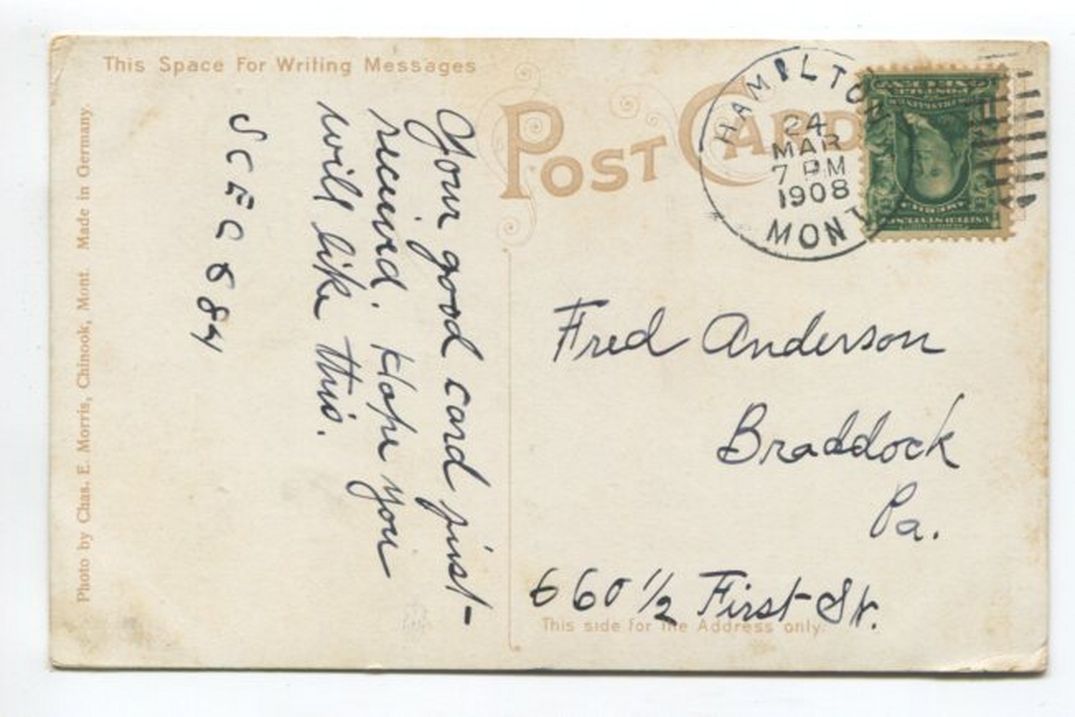 This Space For Writing Messages
POST CARD
HAMILTON
24
MAR
7 PM
1908
MONT
Your good card just
received. Hope you
will like this.
S C E C 6 84
Fred Anderson
Braddock
Pa.
660 1/2 First St.
This side for the Address only.
Photo by Chas. E. Morris, Chinook, Mont. Made in Germany.